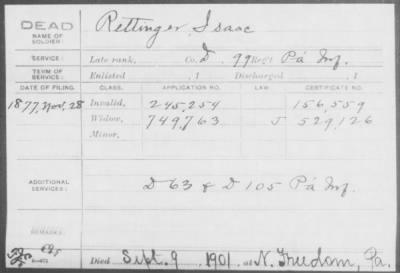 DEAD
NAME OF SOLDIER:
Rettinger, Isaac
SERVICE: Late rank, Co. D, 99 Reg't Pa Inf.
TERM OF SERVICE: Enlisted , 1 Discharged , 1
DATE OF FILING. CLASS. APPLICATION NO. LAW. CERTIFICATE NO.
1877, Nov. 28 Invalid, 245,254 156,559
Widow, 749,763 J 529,126
Minor,
ADDITIONAL SERVICES: D 63 & D 105 Pa Inf.
REMARKS:
Died Sept. 9 1901, at N. Freedom, Pa.